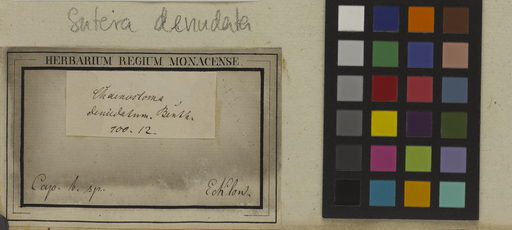 Sutera denudata
HERBARIUM REGIUM MONACENSE.
Chaenostoma
denudatum. Benth.
100. 12.
Cap. b. sp. Ecklon.